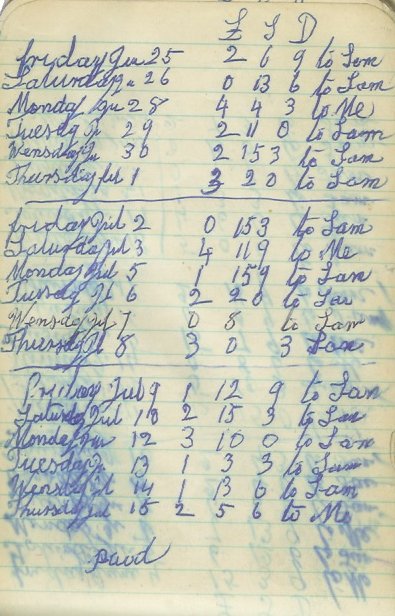 £ S D
friday Ju 25 2 6 9 to Sam
Saturday Ju 26 0 13 6 to Sam
Monday Ju 28 4 4 3 to Me
Tuesdy Ju 29 2 11 0 to Sam
Wensday Ju 30 2 15 3 to Sam
Thursdiy Jul 1 3 2 0 to Sam
friday Jul 2 0 15 3 to Sam
Saturda Jul 3 4 11 9 to Me
Monday Jul 5 1 15 9 to Sam
Tusday Jul 6 2 2 0 to Sam
Wensday Jul 7 0 8 to Sam
Thursdy Jul 8 3 0 3 Sam
Friday Jul 9 1 12 9 to Sam
Saturday Jul 10 2 15 3 to Sam
Monday 12 3 10 0 to Sam
Tuesday Ju 13 1 3 3 to Sam
Wensdy Jul 14 1 13 6 to Sam
Thursday Jul 15 2 5 6 to Me
paid